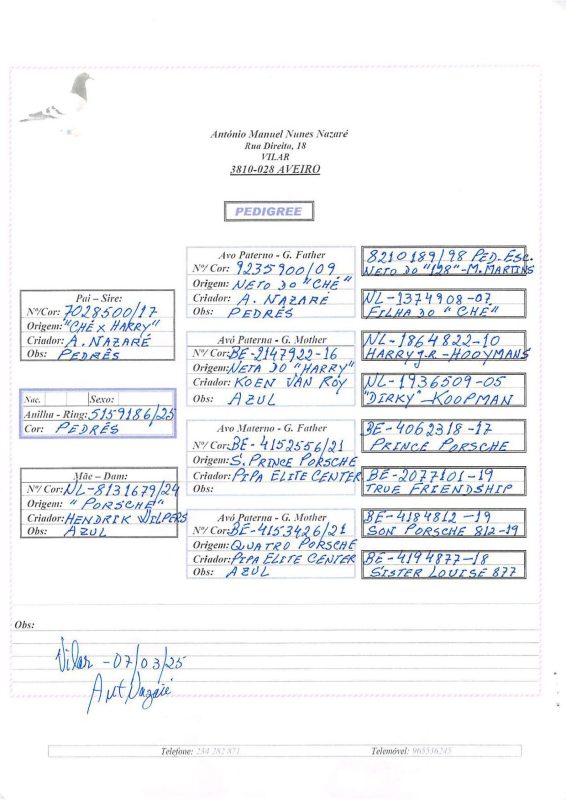 António Manuel Nunes Nazaré
Rua Direita, 18
VILAR
3810-028 AVEIRO
PEDIGREE
Pai – Sire:
Nº/Cor: 7028500/17
Origem: "CHÉ x HARRY"
Criador: A. NAZARÉ
Obs: PEDRÊS
Nac. Sexo:
Anilha - Ring: 5159186/25
Cor: PEDRÊS
Mãe – Dam:
Nº/Cor: NL-8131679/24
Origem: "PORSCHE"
Criador: HENDRIK WILPERS
Obs: AZUL
Avo Paterno - G. Father
Nº/ Cor: 9235900/09
Origem: NETO DO "CHÉ"
Criador: A. NAZARÉ
Obs: PEDRÊS
Avó Paterna - G. Mother
Nº/ Cor: BE-2147922-16
Origem: NETA DO "HARRY"
Criador: KOEN VAN ROY
Obs: AZUL
Avo Materno - G. Father
Nº/ Cor: BE-4152556/21
Origem: S. PRINCE PORSCHE
Criador: PIPA ELITE CENTER
Obs:
Avó Paterna - G. Mother
Nº/ Cor: BE-4153426/21
Origem: QUATRO PORSCHE
Criador: PIPA ELITE CENTER
Obs: AZUL
8210189/98 PED-ESC.
NETO DO "128"-M. MARTINS
NL-1374908-07
FILHA DO "CHÉ"
NL-1864822-10
HARRY JR-HOOYMANS
NL-1936509-05
"DIRKY"-KOOPMAN
BE-4062318-17
PRINCE PORSCHE
BE-2077101-19
TRUE FRIENDSHIP
BE-4184812-19
SON PORSCHE 812-19
BE-4194877-18
SISTER LOUISE 877
Obs:
Vilar - 07/03/25
Ant Nazaré
Telefone: 234 282 871 Telemóvel: 965536245